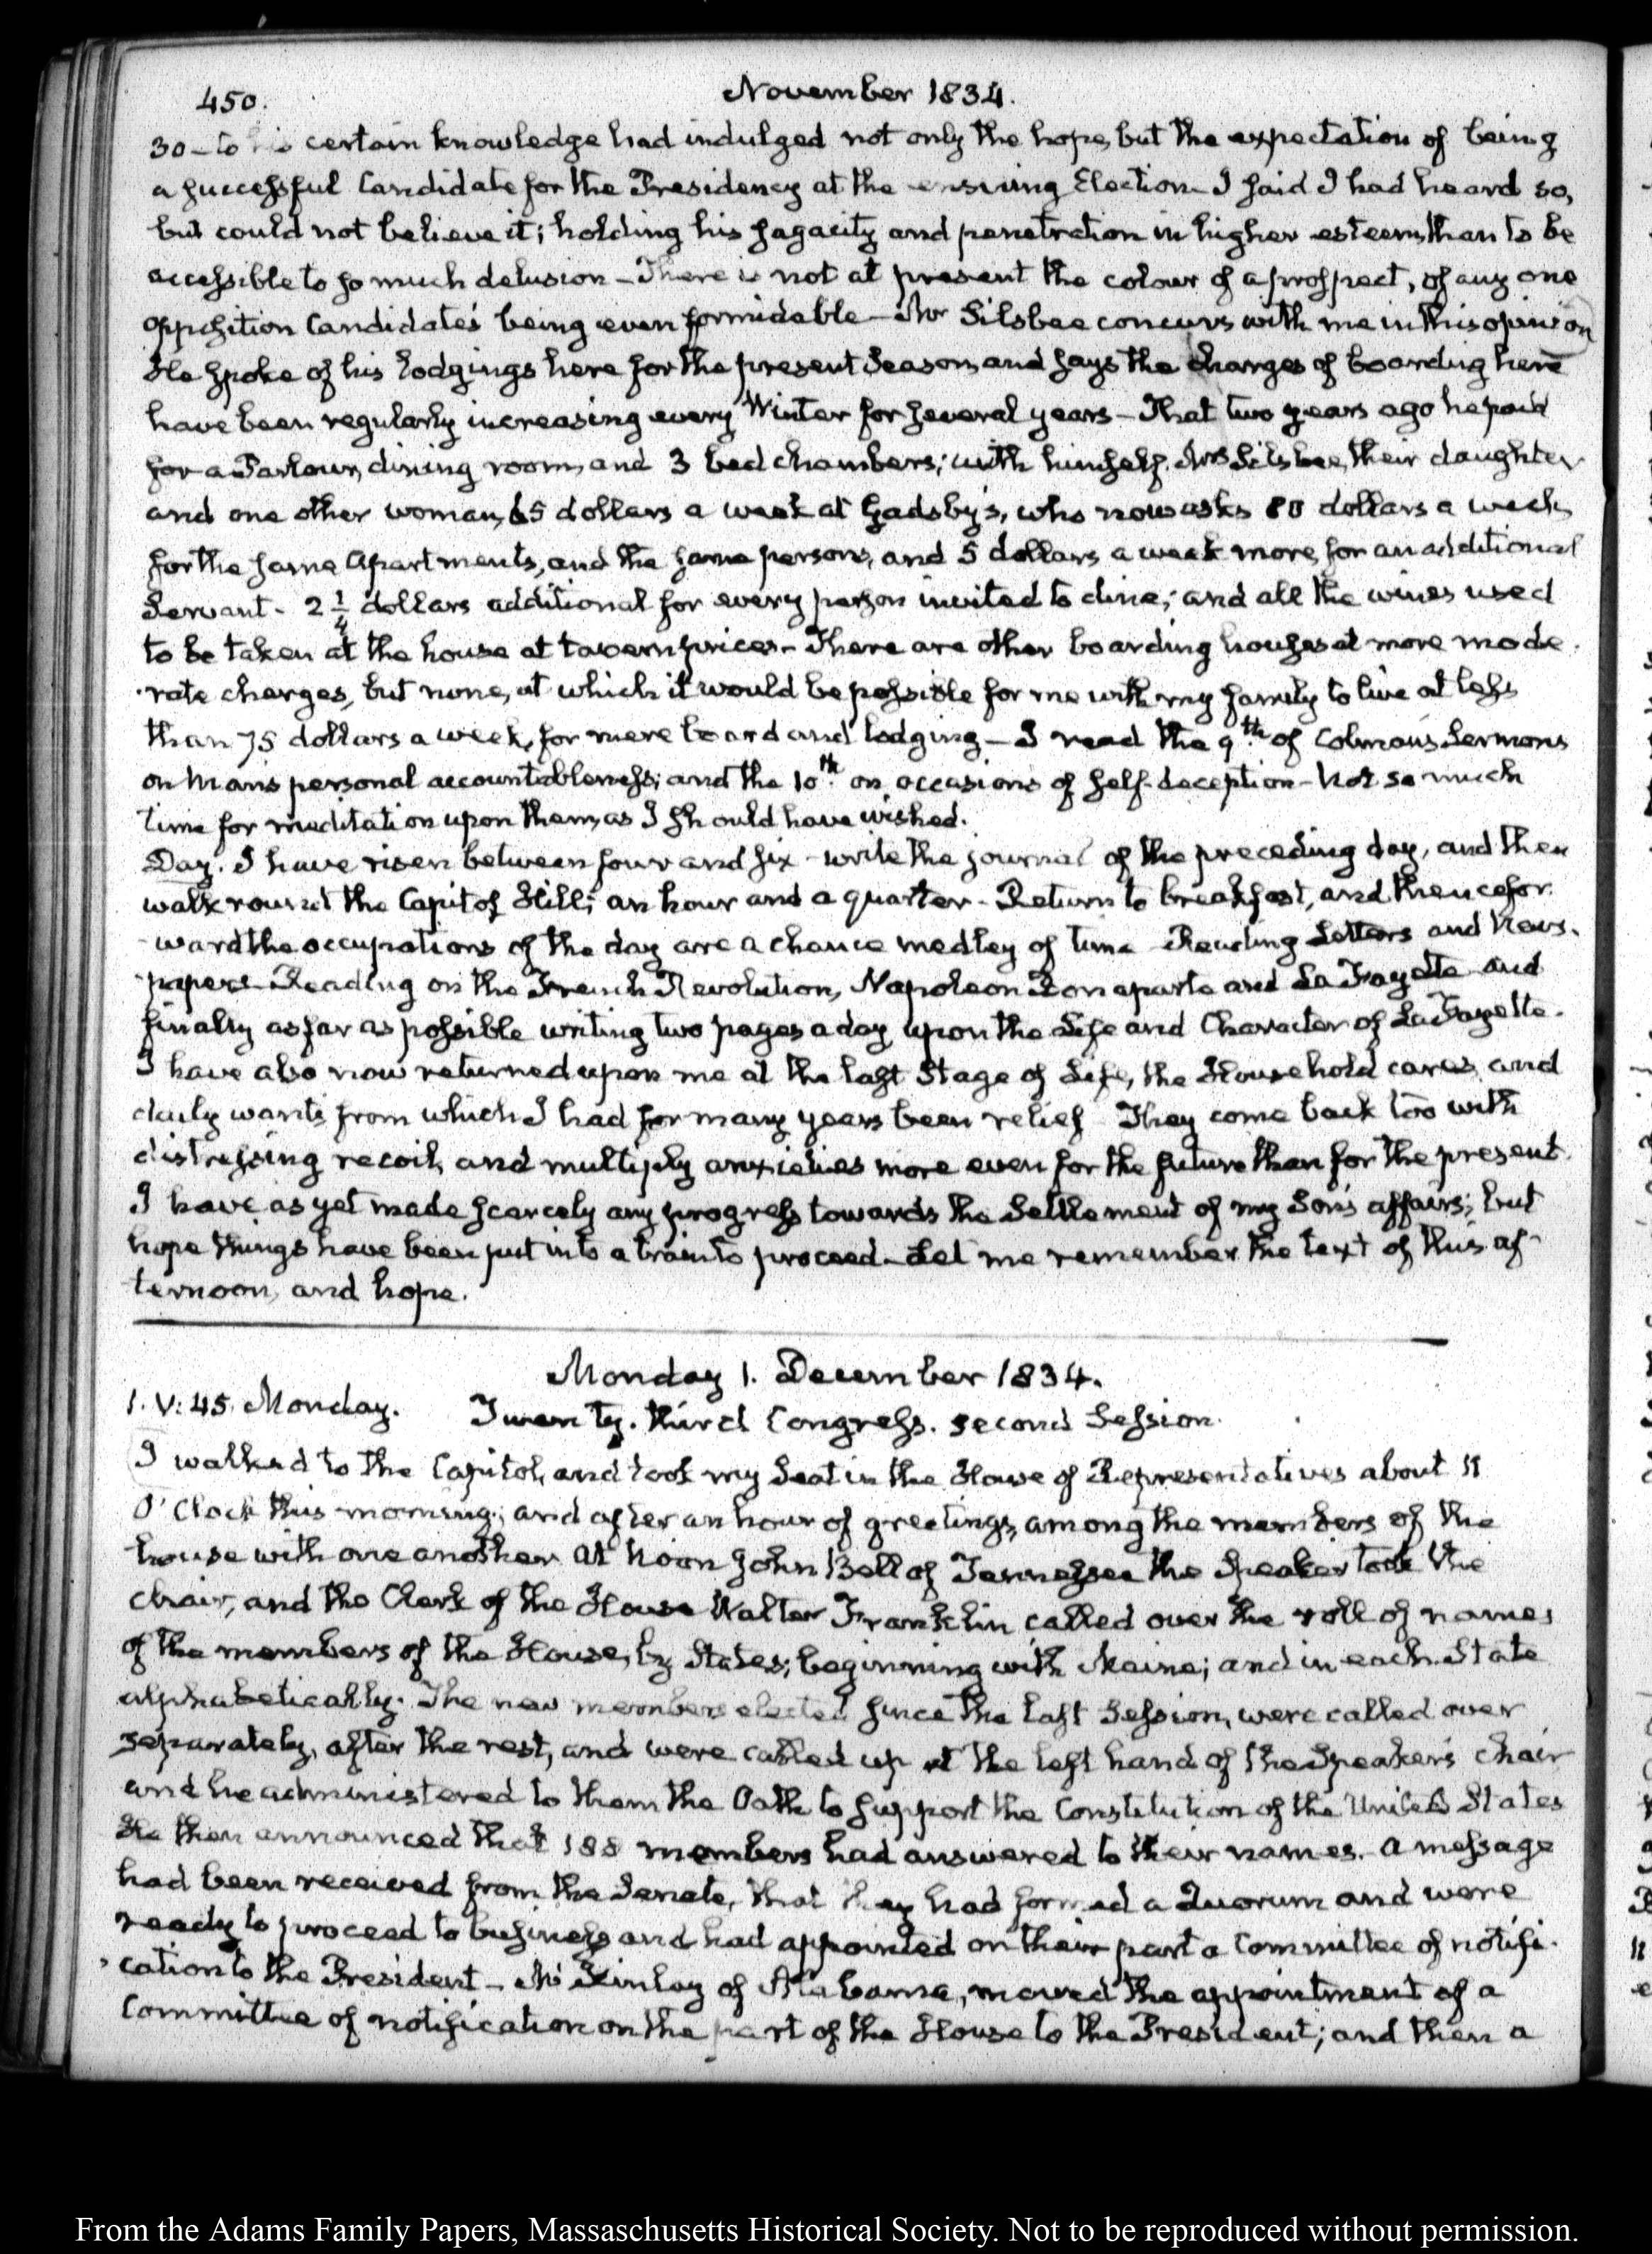 450.
November 1834.
30 – to his certain knowledge had indulged not only the hope, but the expectation of being
a successful Candidate for the Presidency at the ensuing Election – I said I had heard so,
but could not believe it; holding his sagacity and penetration in higher esteem, than to be
accessible to so much delusion – There is not at present the colour of a prospect, of any one
opposition Candidate's being even formidable – Mr Silsbee concurs with me in this opinion
He spoke of his lodgings here for the present Season, and says the charges of boarding here
have been regularly increasing every Winter for several years – That two years ago he paid
for a Parlour, dining room, and 3 bed chambers; with himself, Mrs Silsbee, their daughter
and one other woman, 65 dollars a week at Gadsby's, who now asks 80 dollars a week
for the same apartments, and the same persons, and 5 dollars a week more, for an additional
Servant – 2 1/4 dollars additional for every person invited to dine; and all the wines used
to be taken at the house at tavern prices – There are other boarding houses at more mode
rate charges, but none, at which it would be possible for me with my family to live at less
than 75 dollars a week, for mere board and lodging – I read the 9th. of Colman's Sermons
on Man's personal accountableness; and the 10th. on occasions of self-deception – Not so much
time for meditation upon them, as I should have wished.
Day. I have risen between four and six – write the journal of the preceding day, and then
walk round the Capitol Hill; an hour and a quarter – Return to breakfast, and thencefor
ward the occupations of the day are a chance medley of time – Reading Letters and News-
papers – Reading on the French Revolution, Napoleon Bonaparte and La Fayette and
finally as far as possible writing two pages a day upon the Life and Character of La Fayette.
I have also now returned upon me at the last Stage of Life, the Household cares and
daily wants from which I had for many years been relief They come back too with
distressing recoil, and multiply anxieties more even for the future than for the present.
I have as yet made scarcely any progress towards the Settlement of my Son's affairs; but
hope things have been put into a train to proceed – Let me remember the text of this af-
ternoon, and hope.
Monday 1. December 1834.
1. V: 45. Monday. Twenty-third Congress. Second Session.
I walked to the Capitol, and took my Seat in the House of Representatives about 11
O'Clock this morning; and after an hour of greetings, among the members of the
house with one another at Noon John Bell of Tennessee the Speaker took the
chair, and the Clerk of the House Walter Franklin called over the roll of names
of the members of the House, by States; beginning with Maine; and in each State
alphabetically. The new members elected since the last Session, were called over
separately, after the rest, and were called up at the left hand of the Speaker's chair
and he administered to them the Oath to support the Constitution of the United States
He then announced that 188 members had answered to their names. A message
had been received from the Senate, that they had formed a Quorum and were
ready to proceed to business and had appointed on their part a Committee of notifi-
cation to the President – Mc Kinley of Alabama, moved the appointment of a
Committee of notification on the part of the House to the President; and then a
From the Adams Family Papers, Massaschusetts Historical Society. Not to be reproduced without permission.